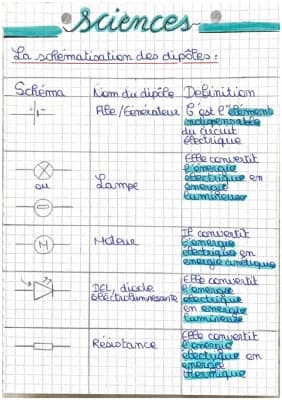 Sciences
La schématisation des dipôles :
Schéma Nom du dipôle Definition
Pile/Générateur C'est l'élément
indispensable
du circuit
électrique
Elle convertit
l'énergie
ou Lampe électrique en
énergie
lumineuse
M Moteur Il convertit
l'énergie
électrique en
energie cinétique
DEL, diode Elle convertit
électroluminescente l'énergie
électrique
en énergie
lumineuse
Résistance Elle convertit
l'énergie
électrique en
énergie
thermique